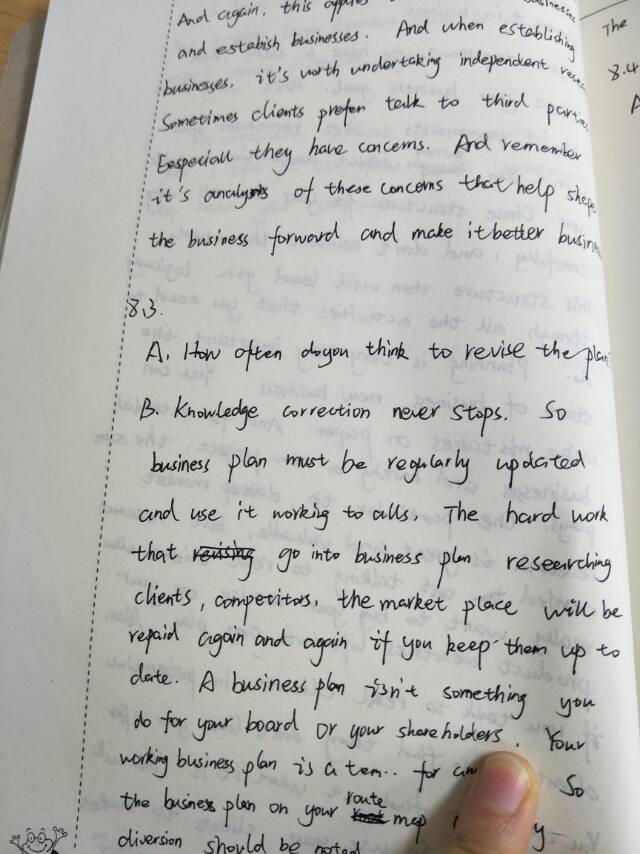 And again, this applies businesses
and estabish businesses. And when establishing
businesses, it's worth undertaking independent resea
Sometimes clients prefer talk to third parties
Eespeciall they have concerns. And remember
it's analysis of these concerns that help shape
the business forward and make it better busines
8.3.
A. How often do you think to revise the plan.
B. Knowledge correction never stops. So
business plan must be regularly updated
and use it working to alls. The hard work
that go into business plan researching
clients, competitors, the market place will be
repaid again and again if you keep them up to
date. A business plan isn't something you
do for your board or your shareholders. Your
working business plan is a tem.. for So
the business plan on your route map
diversion should be noted
The
8.4
A